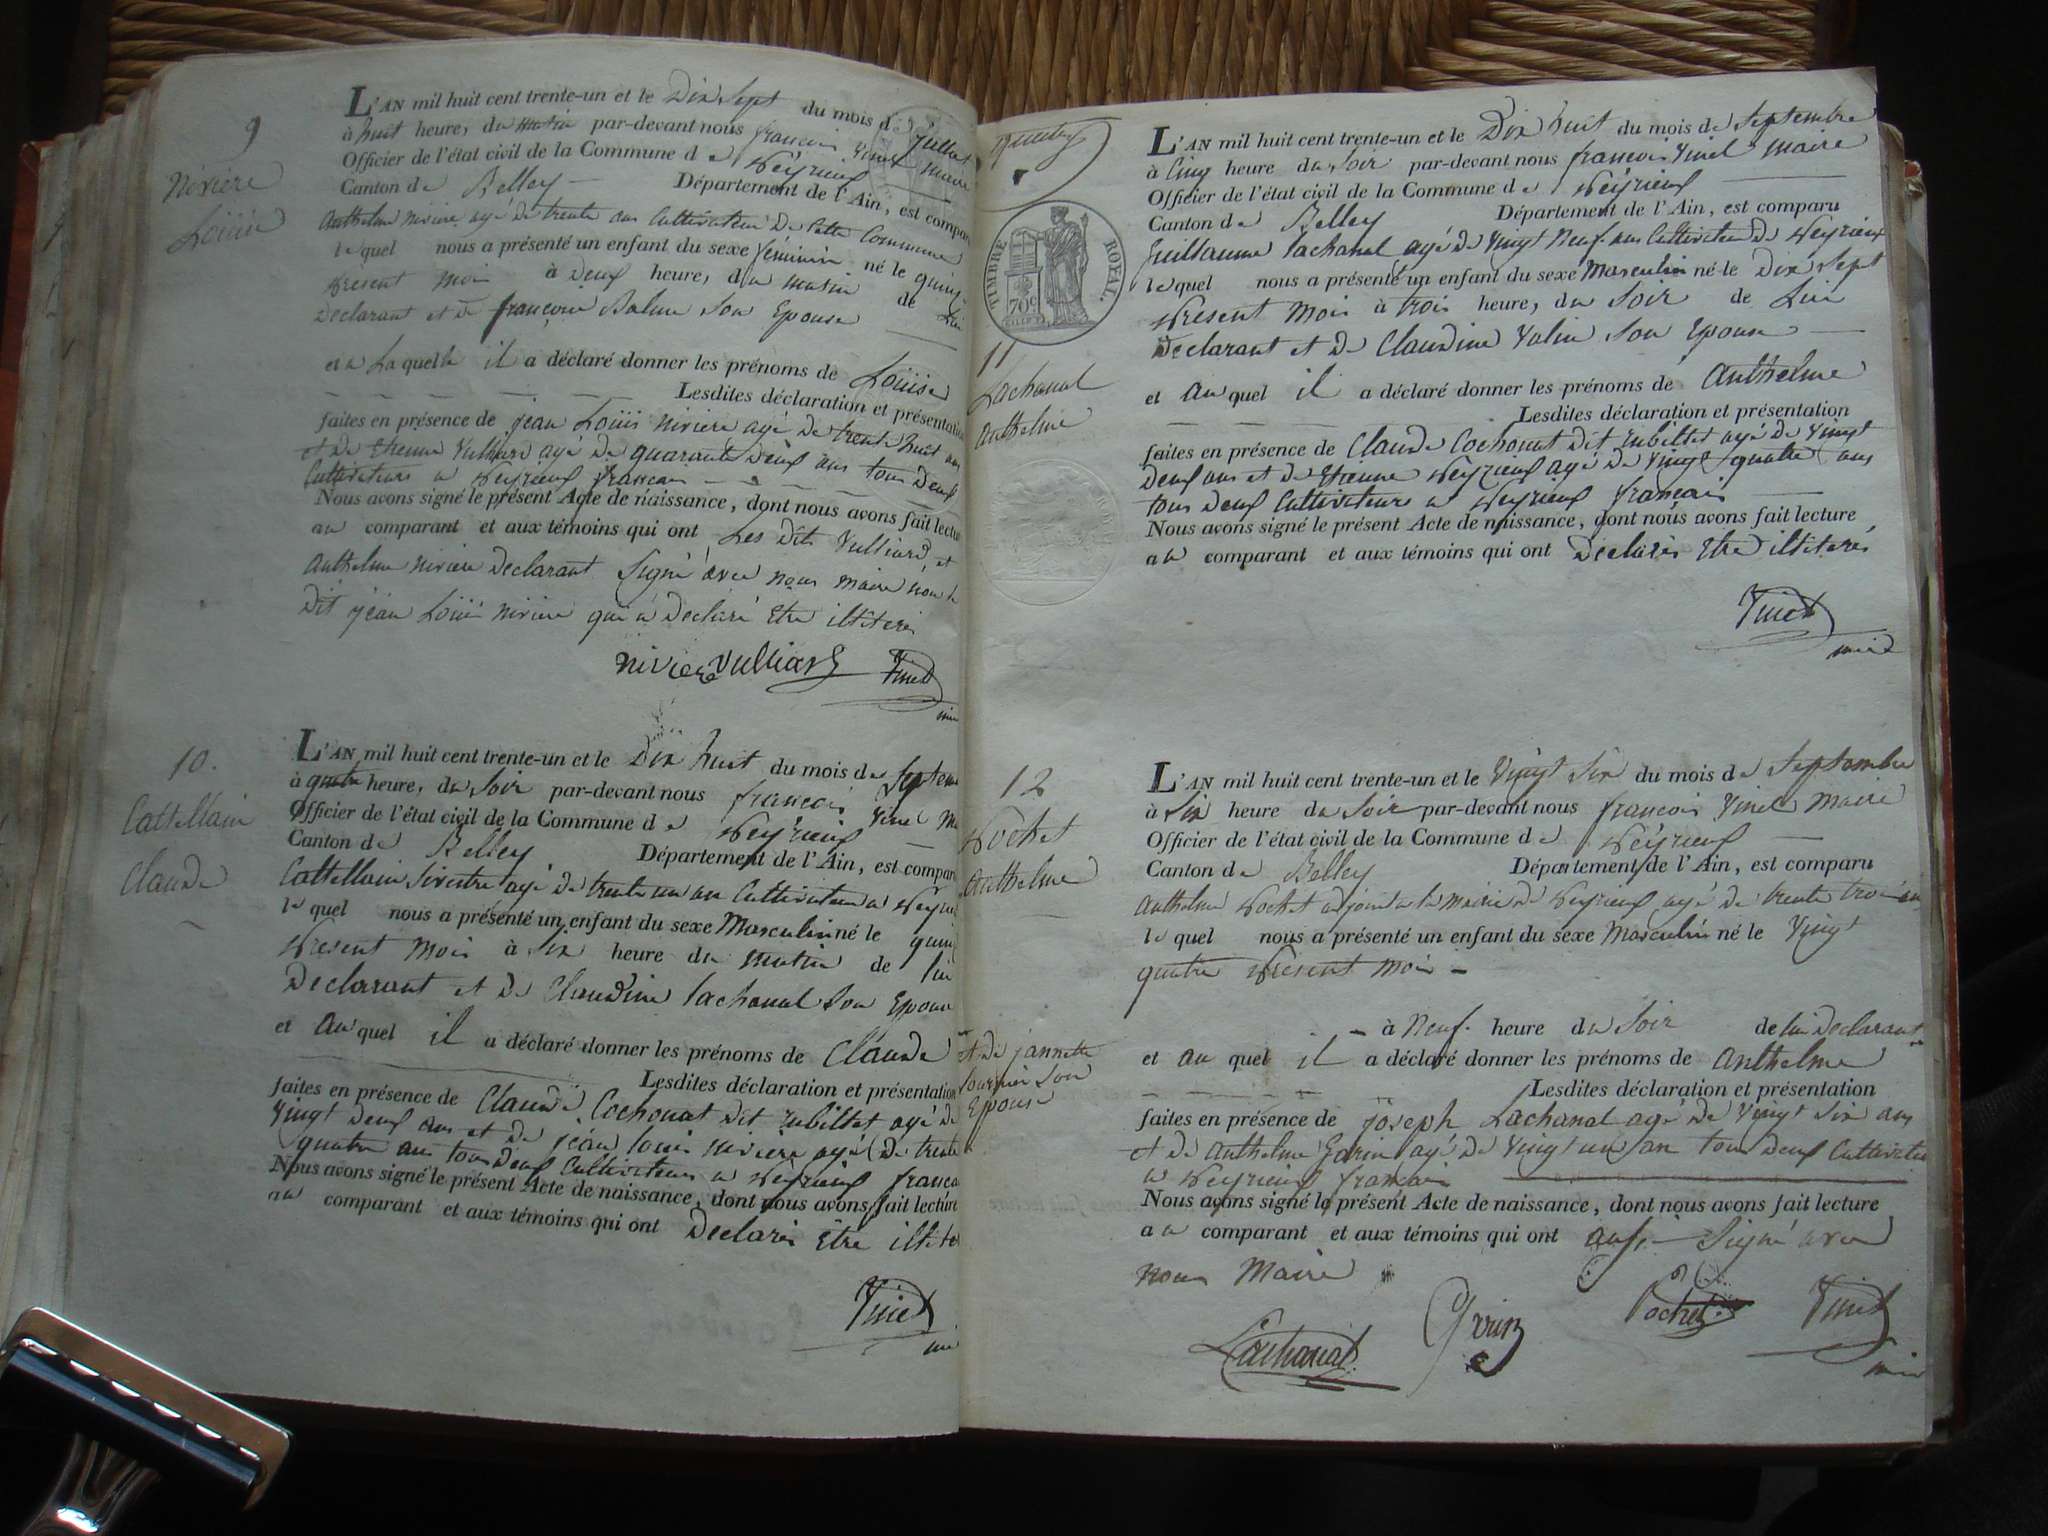 9
Nivière
Loüise
L'AN mil huit cent trente-un et le Dix Sept du mois de Juillet
à huit heure, du matin par-devant nous francois Vinet Maire
Officier de l'état civil de la Commune de Peÿrieux
Canton de Belley Département de l'Ain, est compar
Anthelme niviere agé de trente ans Cultivateur De Cette Commune
lequel nous a présenté un enfant du sexe féminin né le quinz
présent moi à Deux heure, du matin de Lui
Déclarant et de françoise Balme Son Epouse
et a Laquelle il a déclaré donner les prénoms de Loüise
Lesdites déclaration et présentation
faites en présence de jean Loüis niviere agé De trente huit ans
et de Etienne Vulliard agé De quarante Deux ans tous Deux
Cultivateurs a Peÿrieux francais
Nous avons signé le présent Acte de naissance, dont nous avons fait lectur
au comparant et aux témoins qui ont Les Dits Vulliard et
Anthelme niviere Declarant Signé avec nous maire non le
Dit jean Loüis niviere qui a Declaré Etre illiteré
niviere Vulliard Vinet
10.
Cattellain
Claude
L'AN mil huit cent trente-un et le Dix huit du mois de Septem
à quatre heure, du Soir par-devant nous francois Vinet M
Officier de l'état civil de la Commune de Peÿrieux
Canton de Belley Département de l'Ain, est compar
Cattellain Sivestre agé de trente un an Cultivateur a Peÿrieu
lequel nous a présenté un enfant du sexe Masculin né le quin
Present moi à Six heure du matin de lui
Declarant et De Claudine Lachanal Son Epouse
et auquel il a déclaré donner les prénoms de Claude
Lesdites déclaration et présentation
faites en présence de Claude Cochonat dit rubillet agé de
Vingt Deux ans et De jean louis niviere agé De trente
quatre ans tous Deux Cultivateurs a Peÿrieux franca
Nous avons signé le présent Acte de naissance, dont nous avons fait lecture
au comparant et aux témoins qui ont Declarés Etre illite
Vinet
TIMBRE ROYAL.
70c
11
Lachanal
Anthelme
L'AN mil huit cent trente-un et le Dix huit du mois de Septembre
à Cinq heure du Soir par-devant nous francois Vinet Maire
Officier de l'état civil de la Commune de Peÿrieux
Canton de Belley Département de l'Ain, est comparu
Guillaume Lachanal agé De Vingt Neuf ans Cultivateur De Peyrieux
lequel nous a présenté un enfant du sexe Masculin né le Dix Sept
Présent Mois à trois heure, du Soir de Lui
Declarant et De Claudine Valin Son Epouse
et auquel il a déclaré donner les prénoms de Anthelme
Lesdites déclaration et présentation
faites en présence de Claude Cochonat Dit rubillet agé De Vingt
Deux ans et de Etienne Peyrieux agé De Vingt quatre ans
tous Deux Cultivateurs a Peyrieux francais
Nous avons signé le présent Acte de naissance, dont nous avons fait lecture
au comparant et aux témoins qui ont Declarés Etre illiterés
Vinet
12
Pochet
Anthelme
L'AN mil huit cent trente-un et le Vingt Six du mois de Septembre
à Six heure du Soir par-devant nous francois Vinet Maire
Officier de l'état civil de la Commune de Peÿrieux
Canton de Belley Département de l'Ain, est comparu
Anthelme Pochet adjoint a la mairie De Peÿrieux agé De trente trois ans
lequel nous a présenté un enfant du sexe Masculin né le Vingt
quatre Present moi
à Neuf heure du Soir de lui Declarant
et de jannette
fournier Son
Epouse
et au quel il a déclaré donner les prénoms de Anthelme
Lesdites déclaration et présentation
faites en présence de joseph Lachanal agé De Vingt Six ans
et De Anthelme Gorin agé De Vingt un an tous Deux Cultivateu
a Peÿrieux francais
Nous avons signé le présent Acte de naissance, dont nous avons fait lecture
au comparant et aux témoins qui ont aussi Signé avec
nous Maire
Lachanal Pochet Vinet